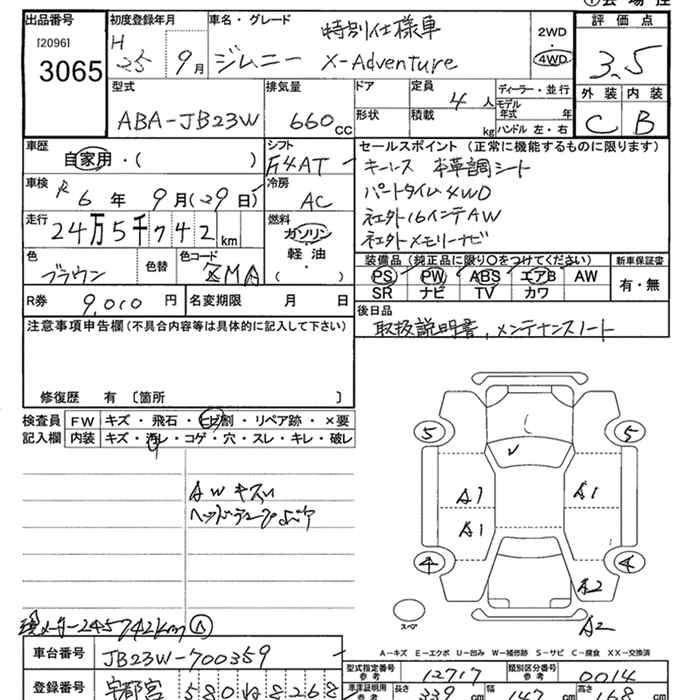 出品番号 [2096] 3065
初度登録年月 H 25 9月
車名・グレード ジムニー 特別仕様車 X-Adventure
2WD 4WD
評価点 3.5
外装 内装
C B
型式 ABA-JB23W
排気量 660cc
ドア 形状
定員 4人
積載 kg
ディーラー・並行
モデル年式 年
ハンドル 左・右
車歴 自家用・( )
シフト F4AT
車検 R 6年 9月(29日)
冷房 AC
走行 24万5千742km
燃料 ガソリン 軽油 ( )
色 ブラウン
色替
色コード
R券 9,010円
名変期限 月 日
セールスポイント(正常に機能するものに限ります)
キーレス 本革調シート
パートタイム4WD
社外16インチAW
社外メモリーナビ
装備品(純正品に限り○をつけてください)
新車保証書
PS PW ABS エアB AW
有・無
SR ナビ TV カワ
後日品 取扱説明書、メンテナンスノート
注意事項申告欄(不具合内容等は具体的に記入して下さい)
修復歴 有〔箇所 〕
検査員記入欄
FW キズ・飛石・ヒビ割・リペア跡・×要
内装 キズ・汚レ・コゲ・穴・スレ・キレ・破レ
AWキズ
5 5
A1 A1
A1
4 4
A2
A2
スペア
現メーター245742km
A-キズ E-エクボ U-凹み W-補修跡 S-サビ C-腐食 XX-交換済
車台番号 JB23W-700359
型式指定番号 参考 12717
類別区分番号 参考 0014
登録番号 宇都宮 580 8268
車検証明用 参考 長さ 339 幅 147 高さ 168